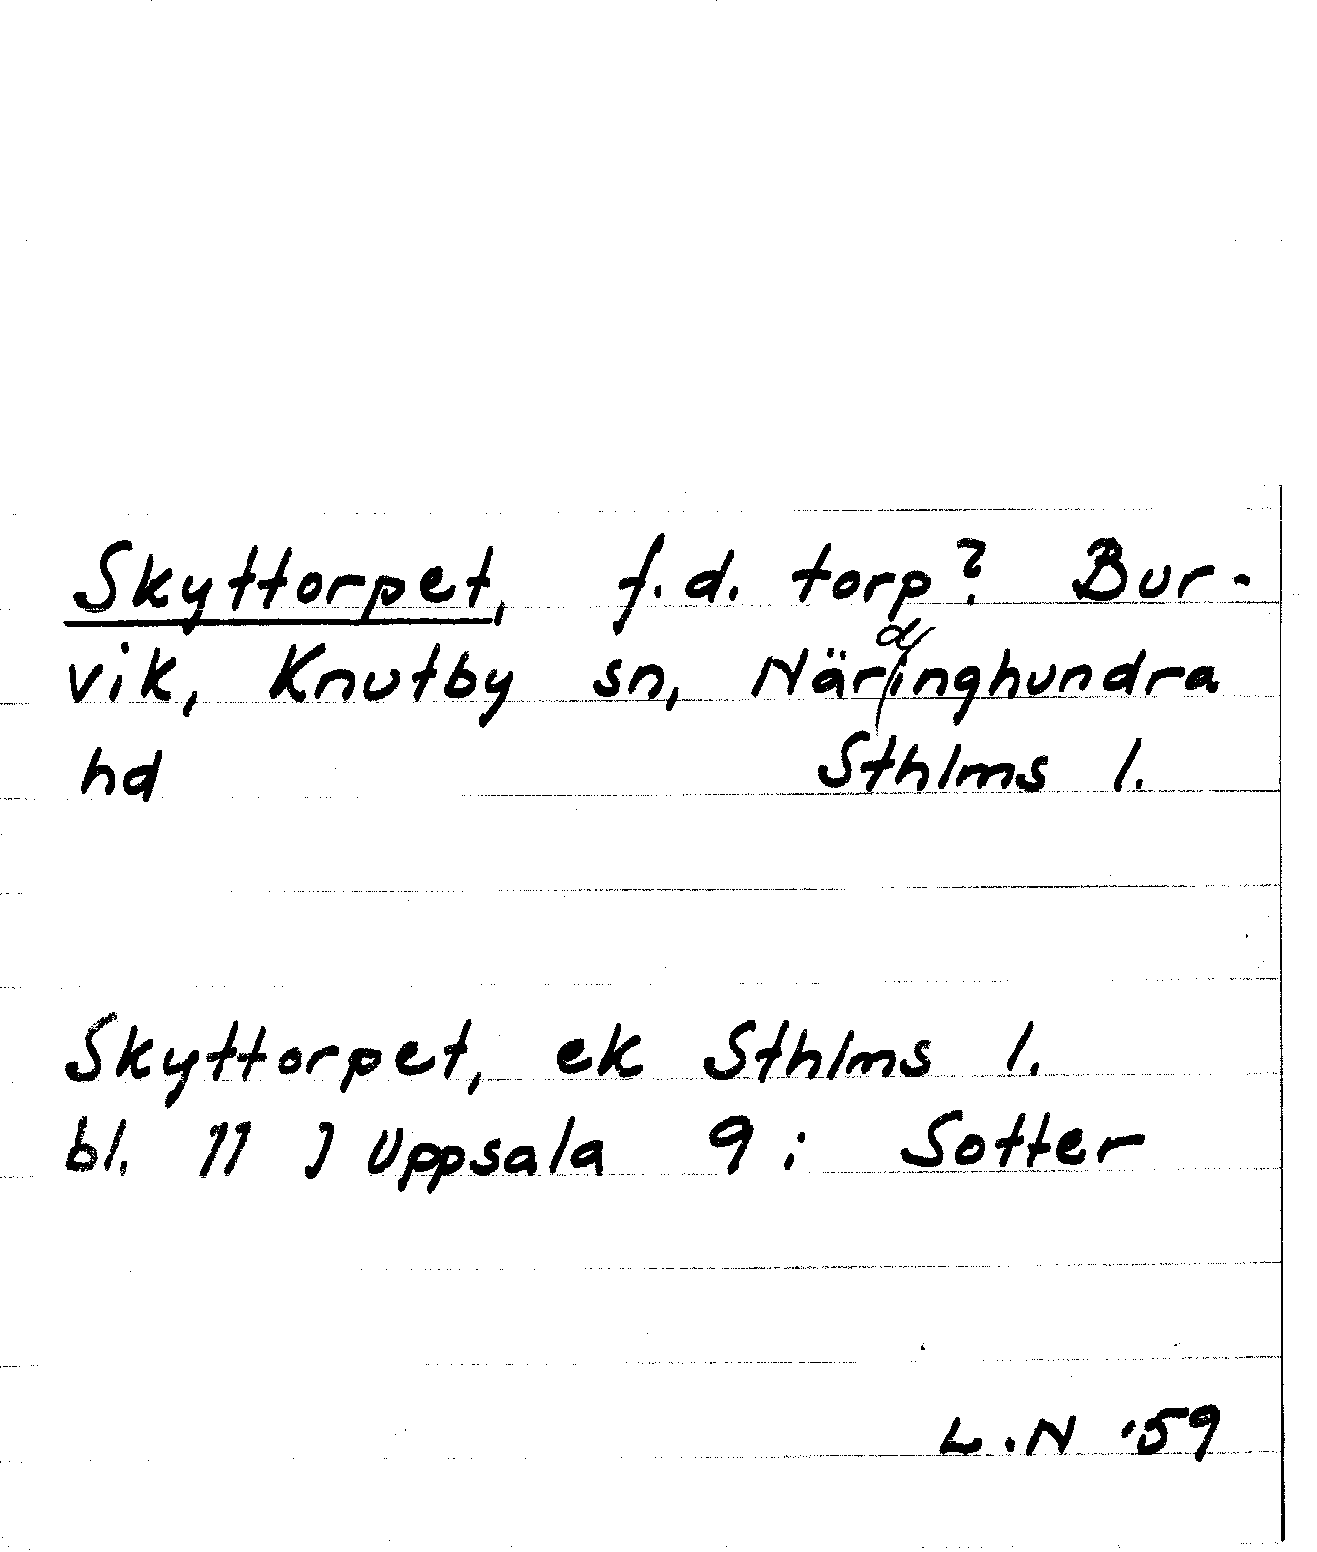 Skyttorpet, f.d. torp? Bur-
vik, Knutby sn, Näringhundra
hd Sthlms l.
Skyttorpet, ek Sthlms l.
bl. 11 J Uppsala 9 i Sotter
L.N '59